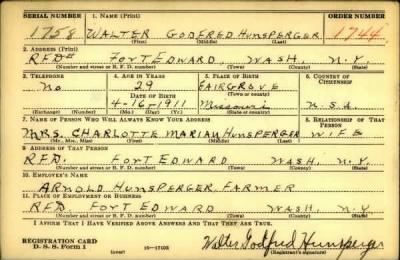 SERIAL NUMBER 1. NAME (Print) ORDER NUMBER
1758 WALTER GODFRED HUNSPERGER 1744
(First) (Middle) (Last)
2. ADDRESS (Print)
RFD# FORT EDWARD, WASH, N.Y.
(Number and street or R. F. D. number) (Town) (County) (State)
3. TELEPHONE 4. AGE IN YEARS 5. PLACE OF BIRTH 6. COUNTRY OF CITIZENSHIP
No 29 FAIRGROVE
DATE OF BIRTH (Town or county)
4-16-1911 Missouri U.S.A.
(Exchange) (Number) (Mo.) (Day) (Yr.) (State or country)
7. NAME OF PERSON WHO WILL ALWAYS KNOW YOUR ADDRESS 8. RELATIONSHIP OF THAT PERSON
MRS. CHARLOTTE MARIAN HUNSPERGER WIFE
(Mr., Mrs., Miss) (First) (Middle) (Last)
9. ADDRESS OF THAT PERSON
R.F.D. FORT EDWARD WASH, N.Y.
(Number and street or R. F. D. number) (Town) (County) (State)
10. EMPLOYER'S NAME
ARNOLD HUNSPERGER FARMER
11. PLACE OF EMPLOYMENT OR BUSINESS
R.F.D. FORT EDWARD WASH, N.Y.
(Number and street or R. F. D. number) (Town) (County) (State)
I AFFIRM THAT I HAVE VERIFIED ABOVE ANSWERS AND THAT THEY ARE TRUE.
REGISTRATION CARD
D. S. S. Form 1 (over) 16-17105 Walter Godfred Hunsperger
(Registrant's signature)